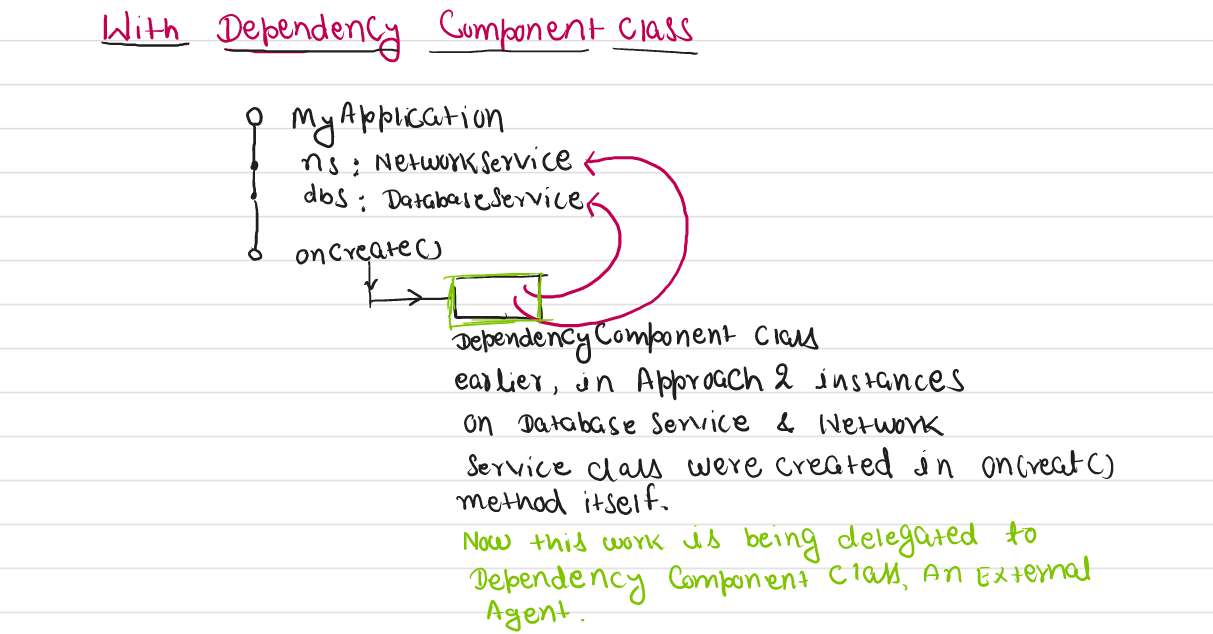 With Dependency Component Class
MyApplication
ns : NetworkService
dbs : DatabaseService
onCreate()
DependencyComponent Class
earlier, in Approach 2 instances
on Database Service & Network
Service class were created in onCreat()
method itself.
Now this work is being delegated to
Dependency Component Class, An External
Agent.